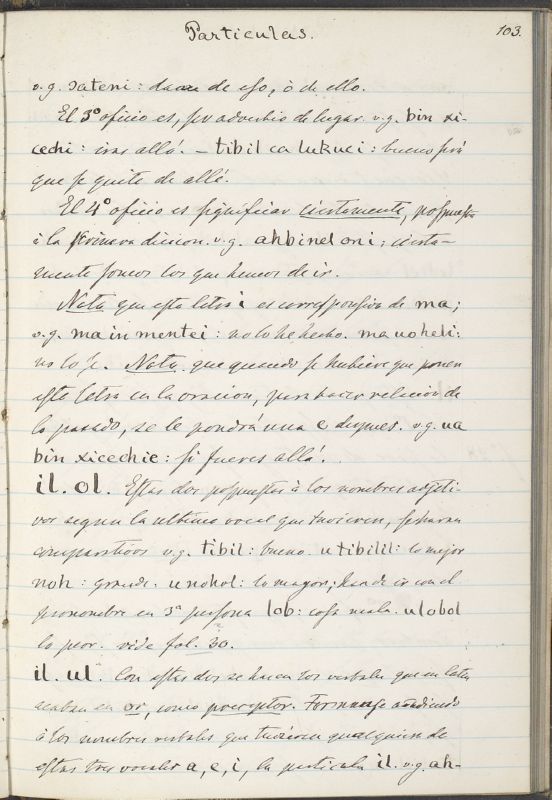 Particulas.
103.
v.g. sateni: de eso, ò de ello.
El 3º oficio es, ser adverbio de lugar. v.g. bin xi-
cechi: iras allá. – tibil ca lukuci: bueno será
que se quite de allá.
El 4º oficio es significar ciertamente, pospuesta
à la primera diccion. v.g. ahbinel oni; cierta-
mente somos los que hemos de ir.
Nota que esta letra i es correspondiva de ma;
v.g. ma in mentei: no lo he hecho. ma uoheli:
no lo sé. Nota que quando se hubiere que poner
esta letra en la oracion, para hacer relacion de
lo pasado, se le pondrá una e despues. v.g. ua
bin xicechie: si fueres allá.
il. ol. Estas dos pospuestas à los nombres adjeti-
vos segun la ultima vocal que tuvieren, se haran
comparativos v.g. tibil: bueno. u tibilil: lo mejor
noh: grande. u nohol: lo mayor; ha de ir con el
pronombre en 3ª persona lob: cosa mala. u lobol
lo peor. vide fol. 30.
il. ul. Con estas dos se hacen los verbales que en latin
acaban en or, como preceptor. Formanse añadiendo
à los nombres verbales que tuvieren qualquiera de
estas tres vocales a, e, i, la particula il. v.g. ah-